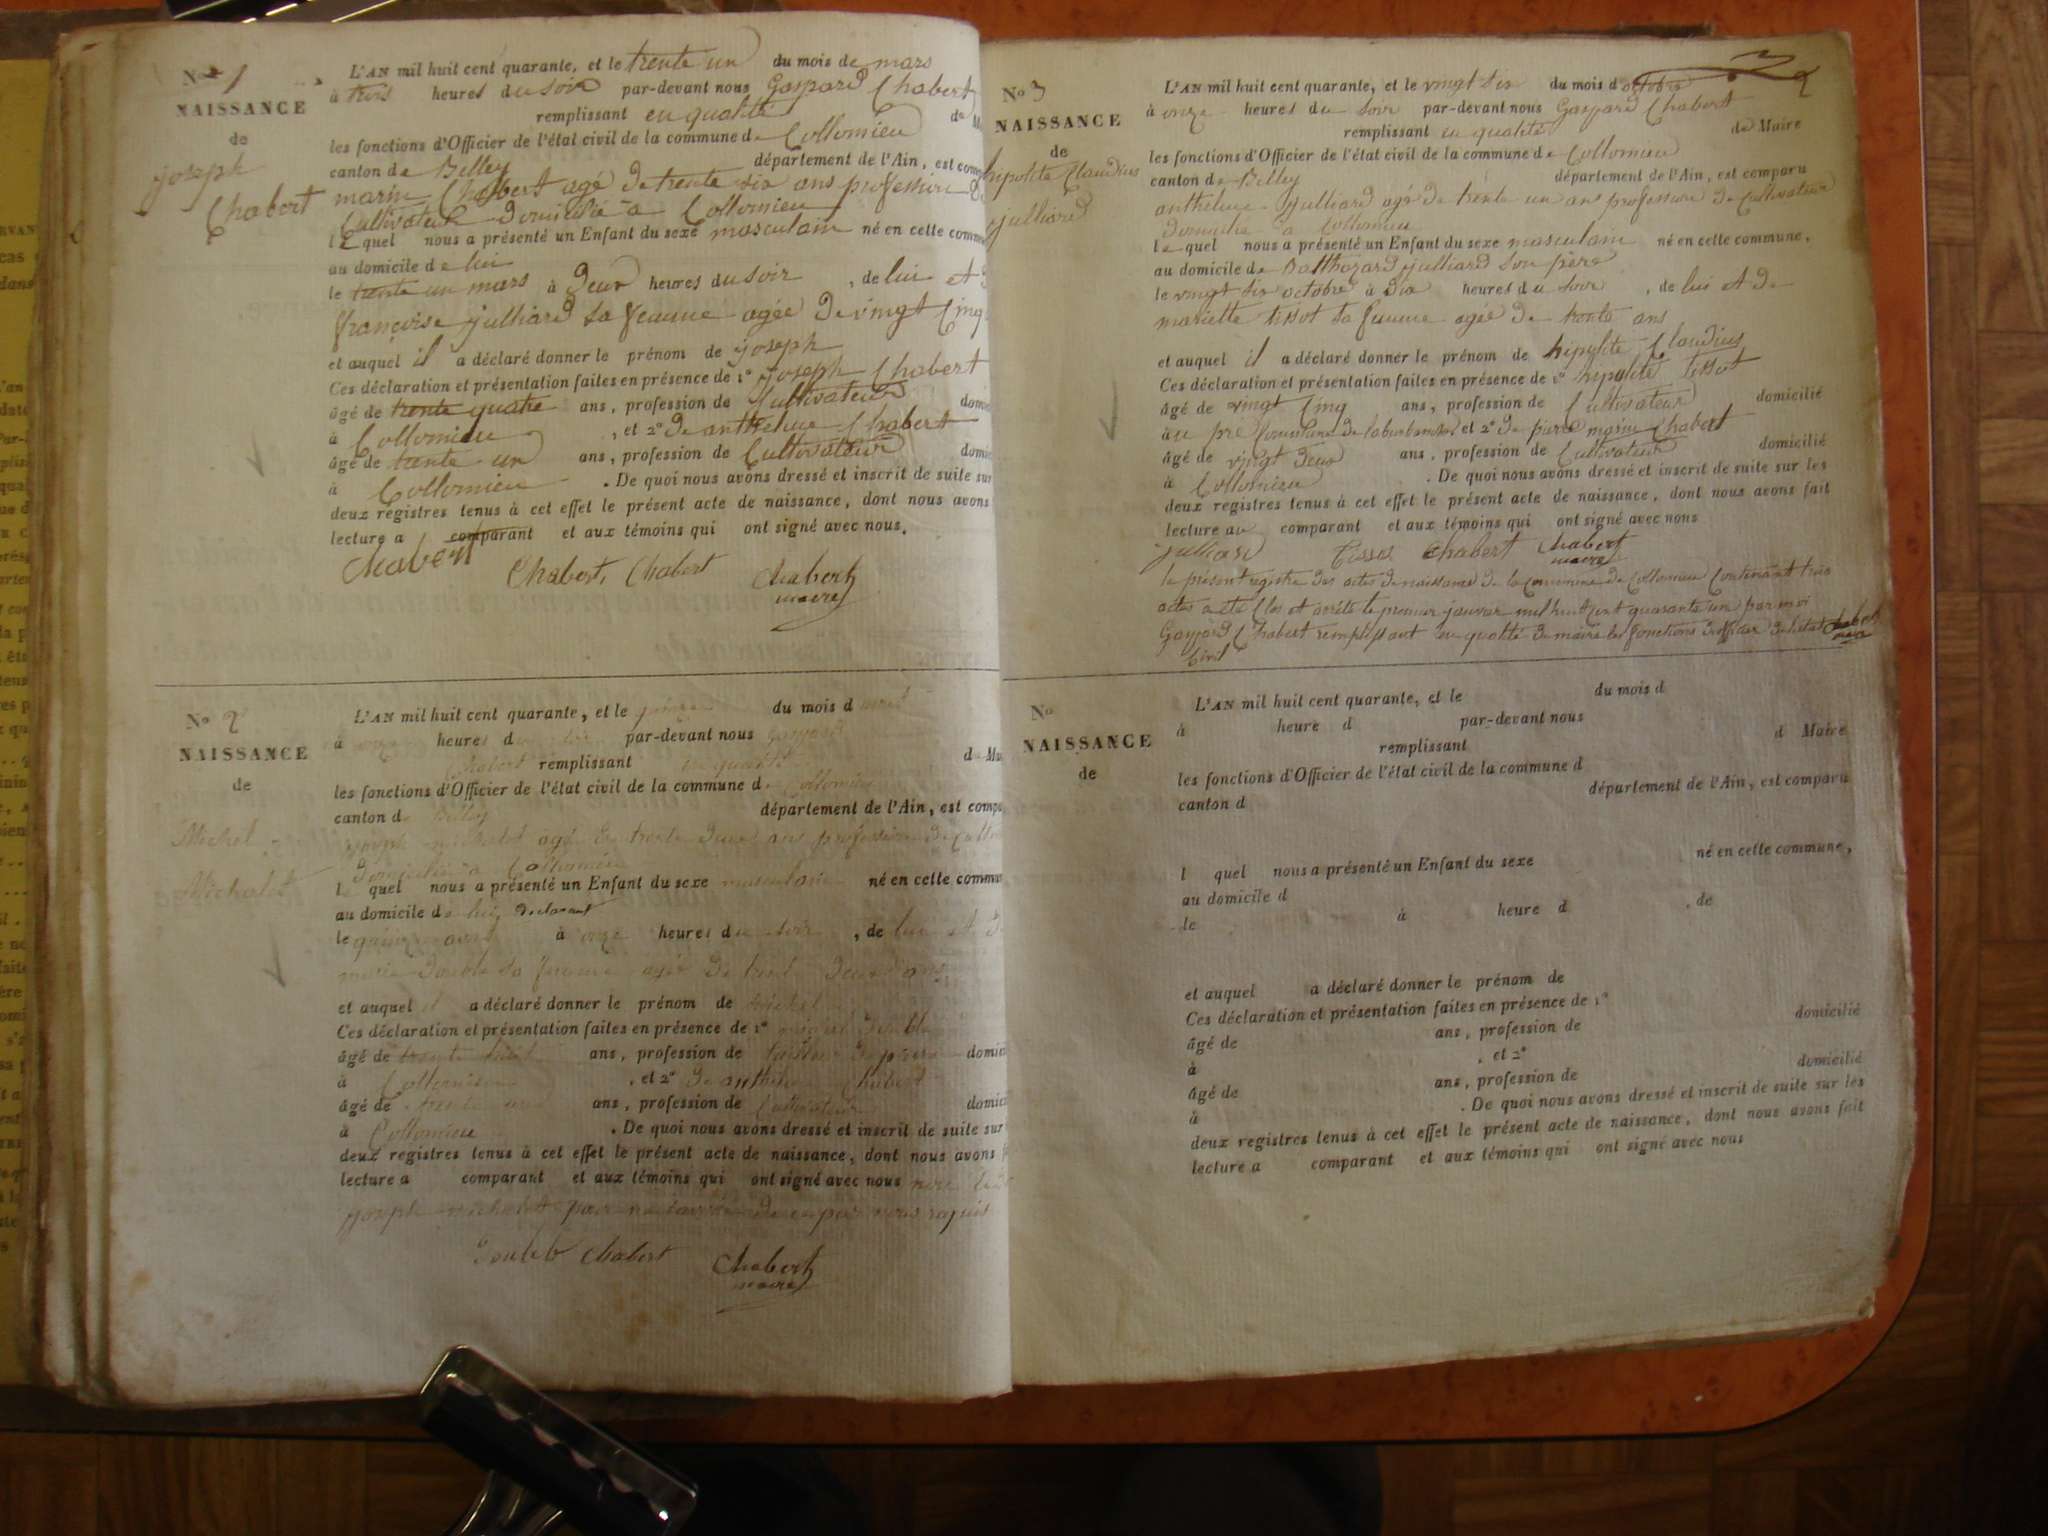 No 1
NAISSANCE
de
joseph
Chabert
L'AN mil huit cent quarante, et le trente un du mois de mars
à trois heures du soir par-devant nous Gaspard Chabert
remplissant en qualité de
les fonctions d'Officier de l'état civil de la commune de Collomieu
canton de Belley département de l'Ain, est
marin Chabert agé de trente six ans profession de
Cultivateur domicilié a Collomieu
le quel nous a présenté un Enfant du sexe masculain né en cette
au domicile de lui
le trente un mars à deux heures du soir , de lui et
françoise julliard sa feamme agée de vingt Cinq
et auquel il a déclaré donner le prénom de joseph
Ces déclaration et présentation faites en présence de 1º joseph Chabert
âgé de trente quatre ans, profession de Cultivateur
à Collomieu , et 2º de anthelme Chabert
âgé de trente un ans, profession de Cultivateur
à Collomieu . De quoi nous avons dressé et inscrit de suite sur
deux registres tenus à cet effet le présent acte de naissance, dont nous avons
lecture a comparant et aux témoins qui ont signé avec nous.
Chabert Chabert, Chabert Chabert
maire
No 2
NAISSANCE
de
Michel
Michalet
L'AN mil huit cent quarante, et le quinze du mois d avril
à onze heures d par-devant nous gaspard
Chabert remplissant en qualité d
les fonctions d'Officier de l'état civil de la commune d Collomieu
canton d Belley département de l'Ain, est
joseph michalet agé de trente deux ans profession de
domicilié a Collomieu
l quel nous a présenté un Enfant du sexe masculain né en cette
au domicile de lui declarant
le quinze avril à onze heures du soir , de lui et
marie double sa femme agée de trent deux ans
et auquel il a déclaré donner le prénom de Michel
Ces déclaration et présentation faites en présence de 1º double
âgé de trente huit ans, profession de
à Collomieu , et 2º de anthelme Chabert
âgé de trente un ans, profession de Cultivateur
à Collomieu . De quoi nous avons dressé et inscrit de suite sur
deux registres tenus à cet effet le présent acte de naissance, dont nous avons
lecture a comparant et aux témoins qui ont signé avec nous
joseph michalet pour ne savoir
Double Chabert Chabert
maire
No 3
NAISSANCE
de
hipolite Claudius
julliard
L'AN mil huit cent quarante, et le vingt six du mois d octobre
à onze heures du soir par-devant nous Gaspard Chabert
remplissant en qualité de Maire
les fonctions d'Officier de l'état civil de la commune de Collomieu
canton de Belley département de l'Ain, est comparu
anthelme julliard agé de trente un ans profession de Cultivateur
domicilié a Collomieu
le quel nous a présenté un Enfant du sexe masculain né en cette commune,
au domicile de Balthazard julliard son père
le vingt six octobre à dix heures du soir , de lui et de
mariette tissot sa femme agée de trente ans
et auquel il a déclaré donner le prénom de hipolite Claudius
Ces déclaration et présentation faites en présence de 1º hipolite tissot
âgé de vingt Cinq ans, profession de Cultivateur domicilié
à et 2º de pierre marin Chabert
âgé de vingt deux ans, profession de Cultivateur domicilié
à Collomieu . De quoi nous avons dressé et inscrit de suite sur les
deux registres tenus à cet effet le présent acte de naissance, dont nous avons fait
lecture au comparant et aux témoins qui ont signé avec nous
julliard Tissot Chabert Chabert
maire
le présent registre des actes de naissance de la Commune de Collomieu Contenant trois
actes a été Clos et arrété le premier janvier mil huit cent quarante un par moi
Gaspard Chabert remplissant en qualité de maire les fonctions d'officier de l'état Chabert
Civil maire
No
NAISSANCE
de
L'AN mil huit cent quarante, et le du mois d
à heure d par-devant nous
remplissant d Maire
les fonctions d'Officier de l'état civil de la commune d
canton d département de l'Ain, est comparu
l quel nous a présenté un Enfant du sexe né en cette commune,
au domicile d
le à heure d , de
et auquel a déclaré donner le prénom de
Ces déclaration et présentation faites en présence de 1º
âgé de ans, profession de domicilié
à , et 2º
âgé de ans, profession de domicilié
à . De quoi nous avons dressé et inscrit de suite sur les
deux registres tenus à cet effet le présent acte de naissance, dont nous avons fait
lecture a comparant et aux témoins qui ont signé avec nous